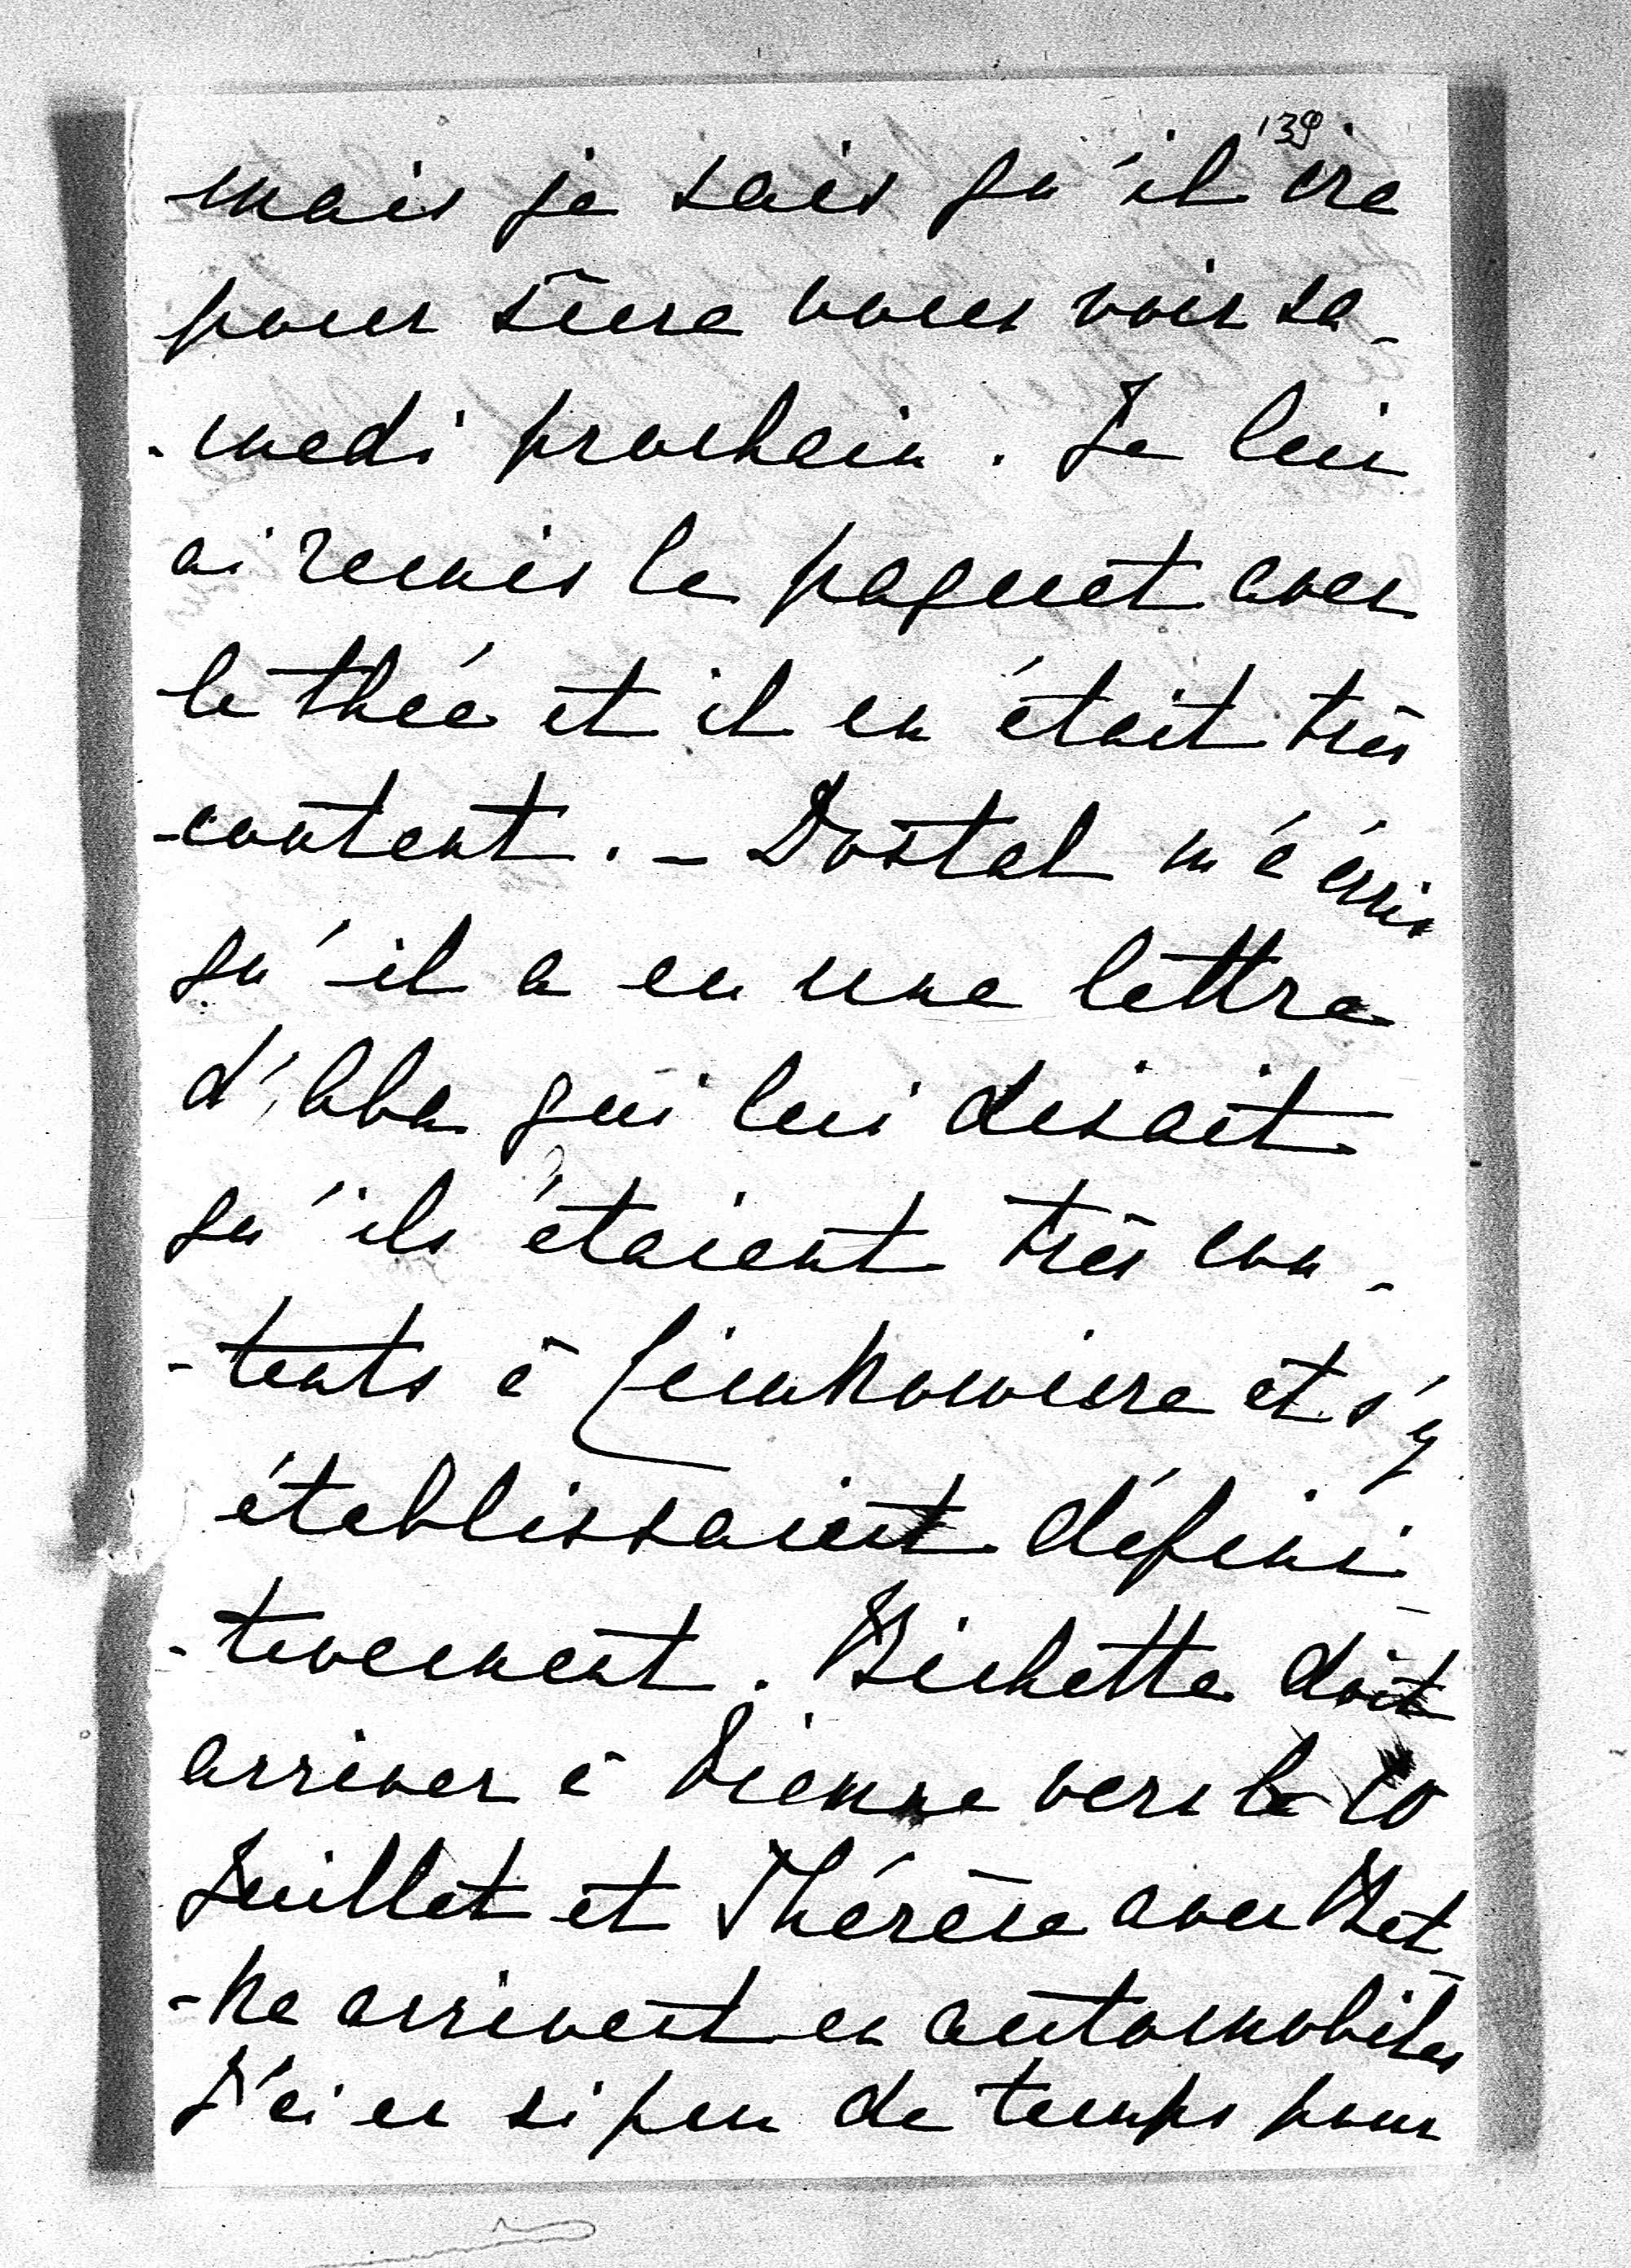 139
mais je sais qu'il ira
pour sûre vous voir sa-
-medi prochain. Je lui
ai remis le paquet avec
le thée et il en était très
content. - Dostal m'écris
qu'il a eu une lettre
qui lui disait
qu'ils étaient très con-
-tents à et s'y
établissaient défini-
-tivement. Bichette doit
arriver à Vienne vers le 10
Juillet et Thérèse avec Bet-
-ka arrivent en automobiles
J'ai eu si peu de temps pour